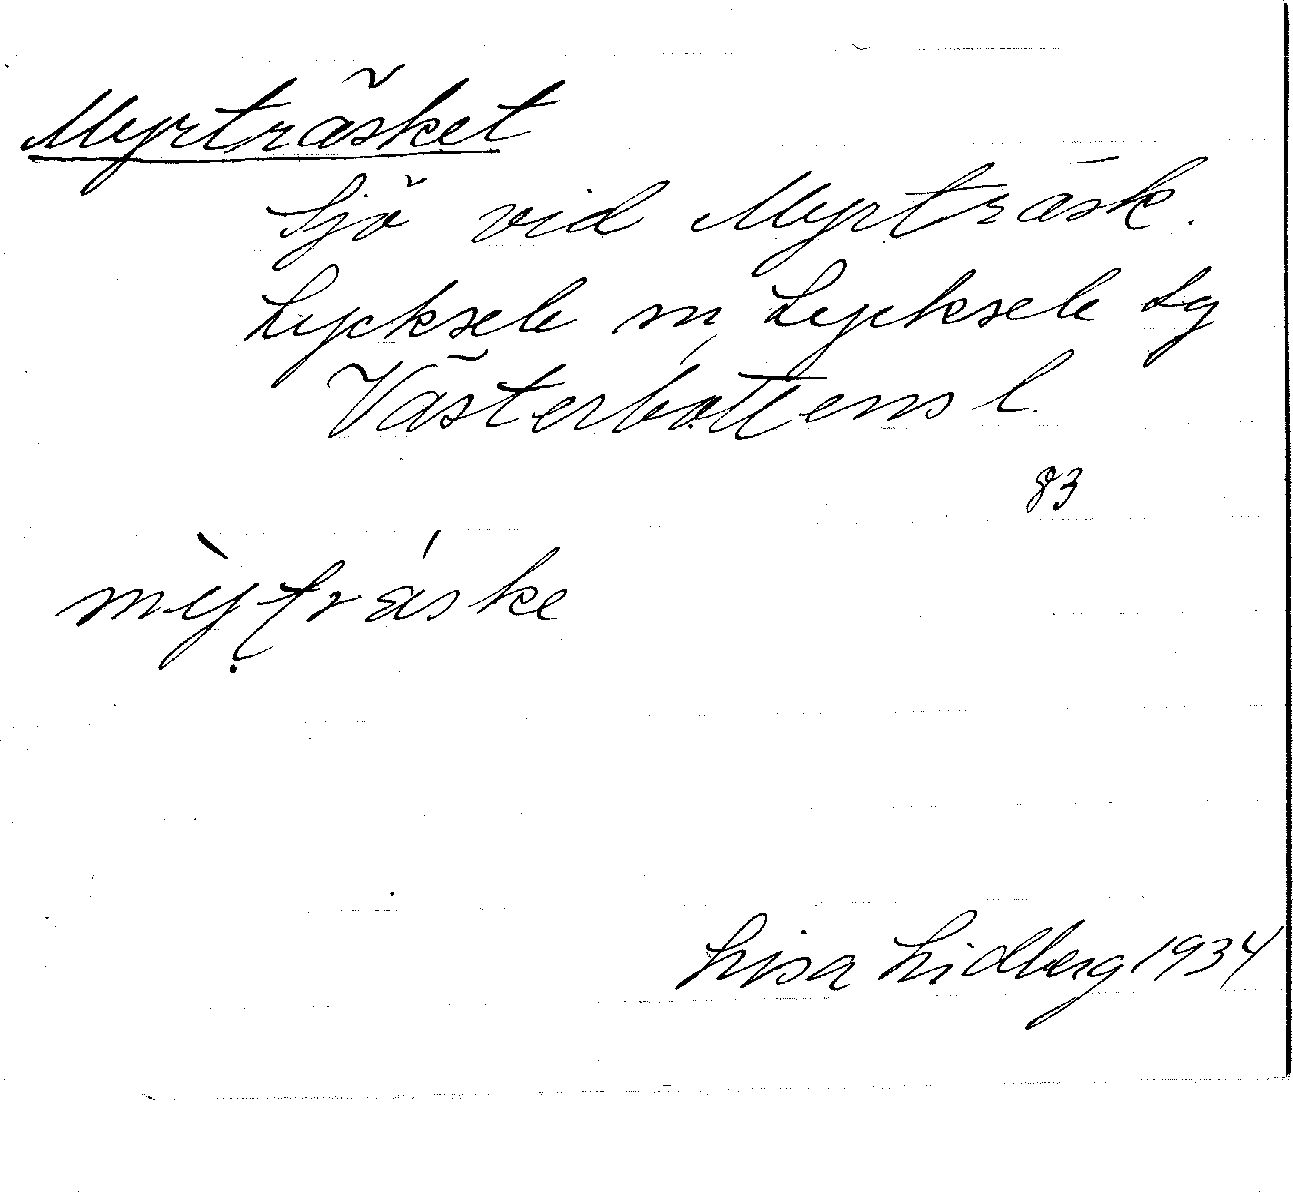 Myrträsket
Sjö vid Myrträsk.
Lycksele sn, Lycksele lg
Västerbottens l.
83
mỳṭrä́ske
Lisa Lidberg 1934